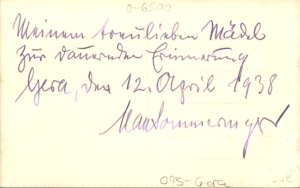 D-6500
Meinem treulieben Mädel
zur dauernden Erinnerung
Gera, den 12. April 1938
095-Gera